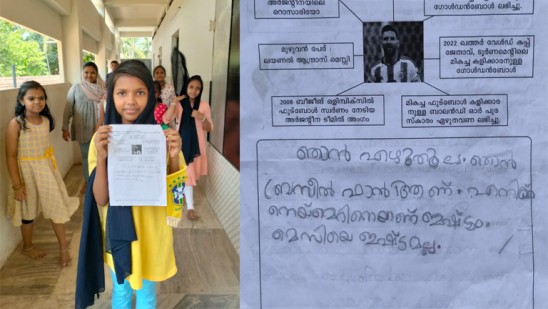 അർജന്റീനയിലെ
റൊസാരിയോ
ഗോൾഡൻബോൾ ലഭിച്ചു.
മുഴുവൻ പേര്
ലയണൽ ആന്ദ്രാസ് മെസ്സി
2022 ഖത്തർ വേൾഡ് കപ്പ്
ജേതാവ്, ടൂർണമെന്റിലെ
മികച്ച കളിക്കാരനുള്ള
ഗോൾഡൻബോൾ
2008 ബീജീങ് ഒളിമ്പിക്സിൽ
ഫുട്ബോൾ സ്വർണം നേടിയ
അർജന്റീന ടീമിൽ അംഗം
മികച്ച ഫുട്ബോൾ കളിക്കാര
നുള്ള ബാലൻഡി ഓർ പുര
സ്കാരം ഏഴുതവണ ലഭിച്ചു.
ഞാൻ എഴുതൂല ഞാൻ
ബ്രസീൽ ഫാൻ ആണ്. എനിക്ക്
നെയ്മറിനെയാണ് ഇഷ്ടം.
മെസിയെ ഇഷ്ടമല്ല.